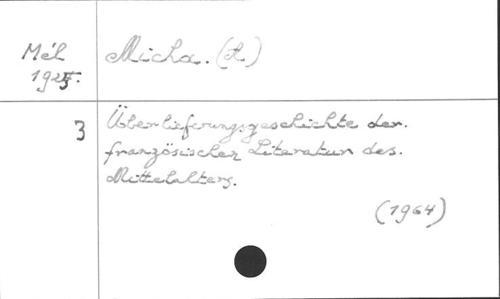 Mél Micha. (A)
3 Überlieferungsgeschichte der.
französischen Literatur des.
Mittelalters.
(1964)